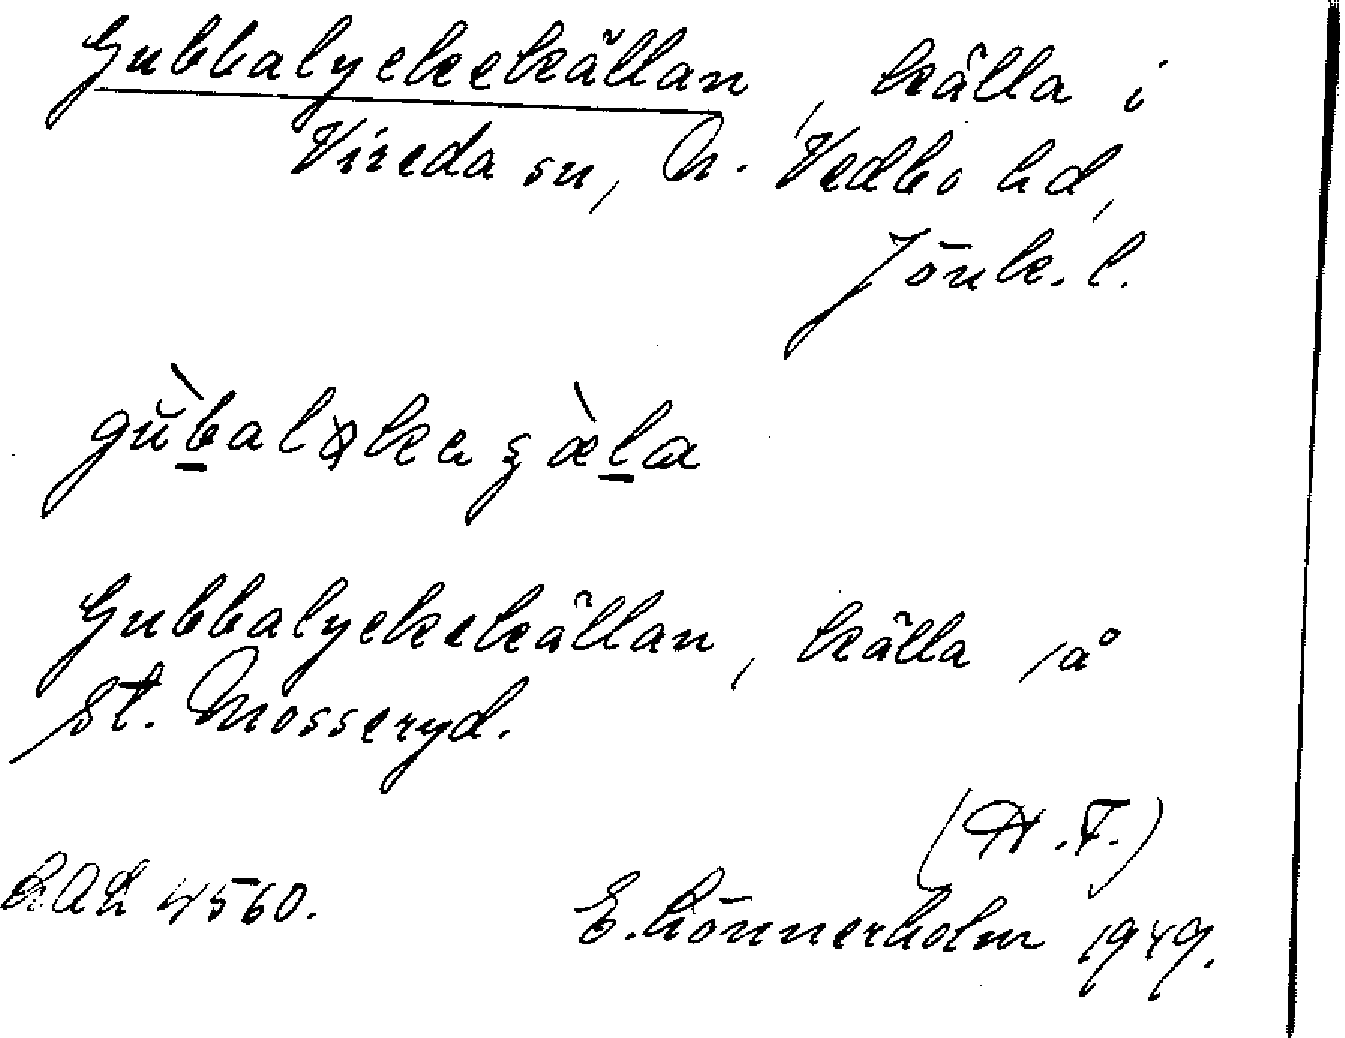 Gubbalyckekällan, källa i
Vireda sn, N. Vedbo hd,
Jönk. l.
Gubbalyckekällan, källa på
St. Mosseryd.
(H.F.)
LAL 4560.
E. Lönnerholm 1949.